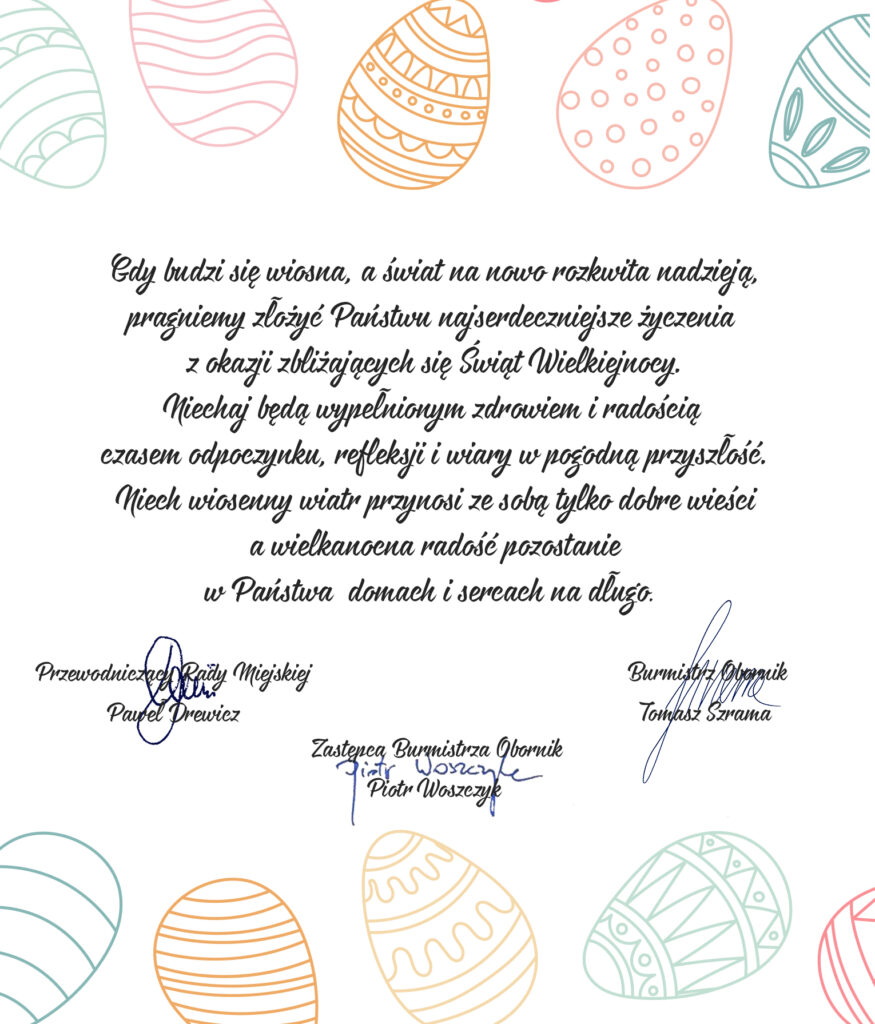 Gdy budzi się wiosna, a świat na nowo rozkwita nadzieją,
pragniemy złożyć Państwu najserdeczniejsze życzenia
z okazji zbliżających się Świąt Wielkiejnocy.
Niechaj będą wypełnionym zdrowiem i radością
czasem odpoczynku, refleksji i wiary w pogodną przyszłość.
Niech wiosenny wiatr przynosi ze sobą tylko dobre wieści
a wielkanocna radość pozostanie
w Państwa domach i sercach na długo.
Przewodniczący Rady Miejskiej
Paweł Drewicz
Burmistrz Obornik
Tomasz Szrama
Zastępca Burmistrza Obornik
Piotr Woszczyk
Piotr Woszczyk